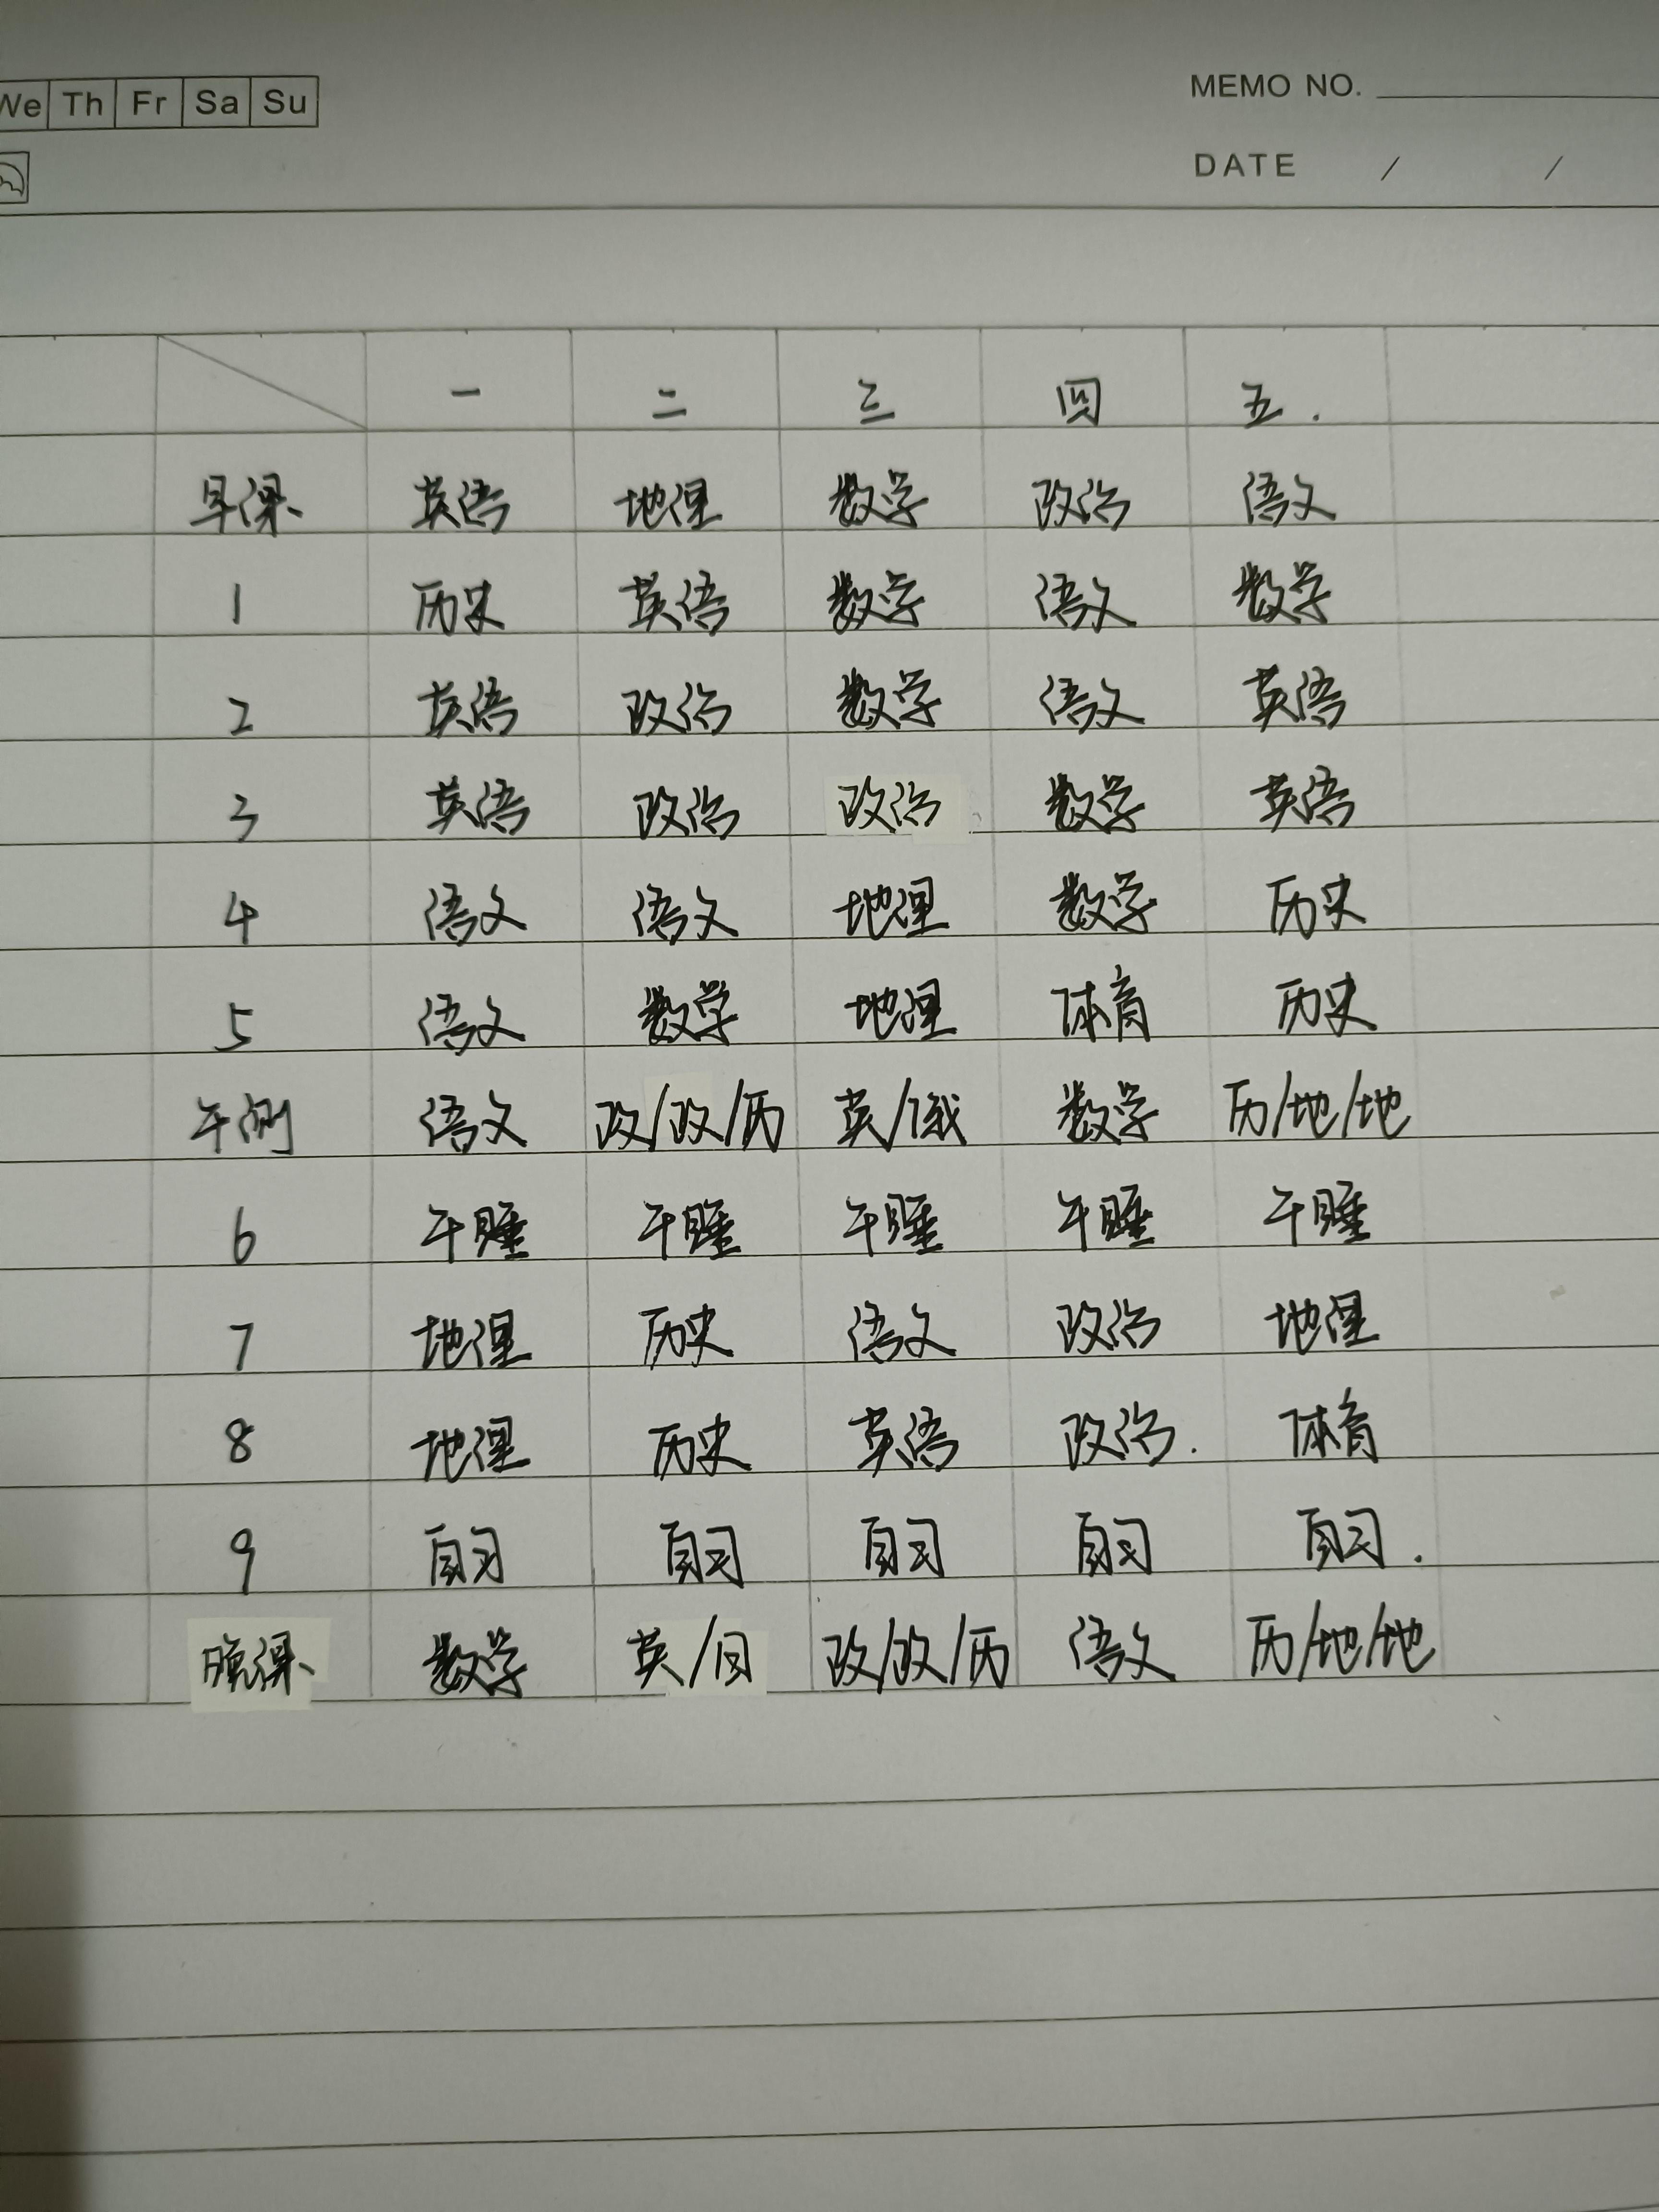 We Th Fr Sa Su
MEMO NO.
DATE / /
一 二 三 四 五.
早课 英语 地理 数学 政治 语文
1 历史 英语 数学 语文 数学
2 英语 政治 数学 语文 英语
3 英语 政治 政治 数学 英语
4 语文 语文 地理 数学 历史
5 语文 数学 地理 体育 历史
午测 语文 政/政/历 英/俄 数学 历/地/地
6 午睡 午睡 午睡 午睡 午睡
7 地理 历史 语文 政治 地理
8 地理 历史 英语 政治. 体育
9 自习 自习 自习 自习 自习.
晚课 数学 英/日 政/政/历 语文 历/地/地